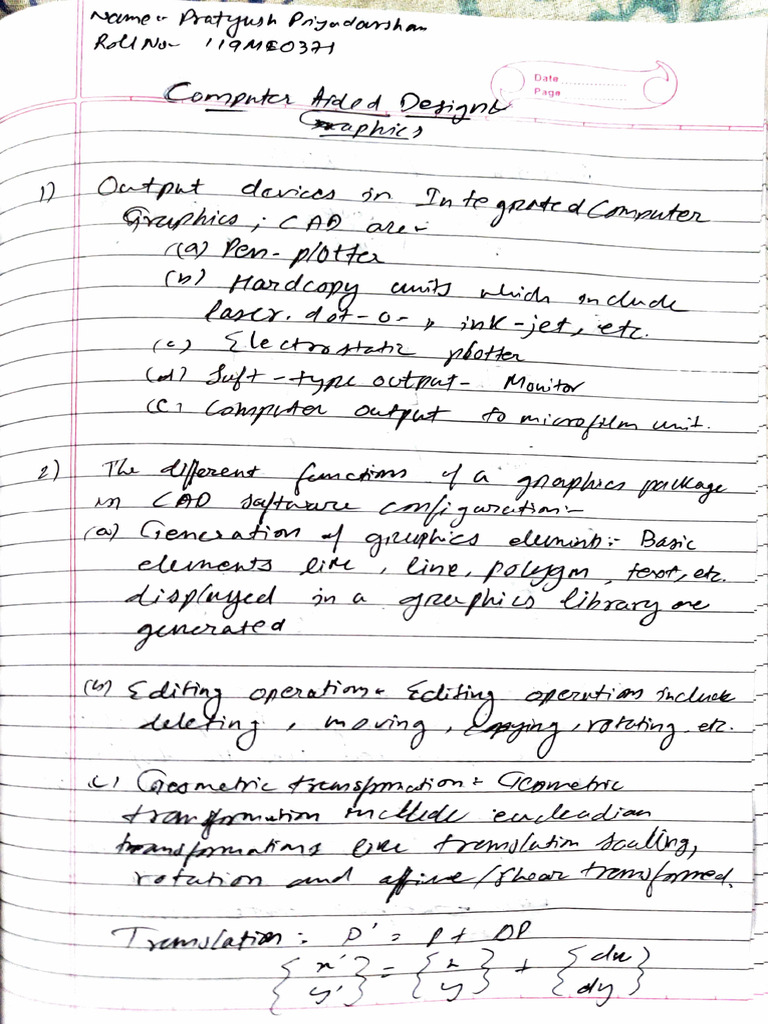 Name:- Pratyush Priyadarshan
Roll No- 119ME0371
Date ............
Page ............
Computer Aided Designs
Graphics
1) Output devices in Integrated Computer
Graphics, CAD are-
(a) Pen-plotter
(b) Hardcopy units which include
laser, dot-o-, ink-jet, etc.
(c) Electrostatic plotter
(d) Soft-type output- Monitor
(e) Computer output to microfilm unit.
2) The different functions of a graphics package
in CAD software configuration:-
(a) Generation of graphics elements:- Basic
elements like, line, polygon, text, etc.
displayed in a graphics library are
generated
(b) Editing operation- Editing operations include
deleting, moving, copying, rotating etc.
c) Geometric transformation:- Geometric
transformation include eucleadian
transformations like translation scalling,
rotation and affine/shear transformed.
Translation: P' = P + DP
{x' y'} = {x y} + {dx dy}